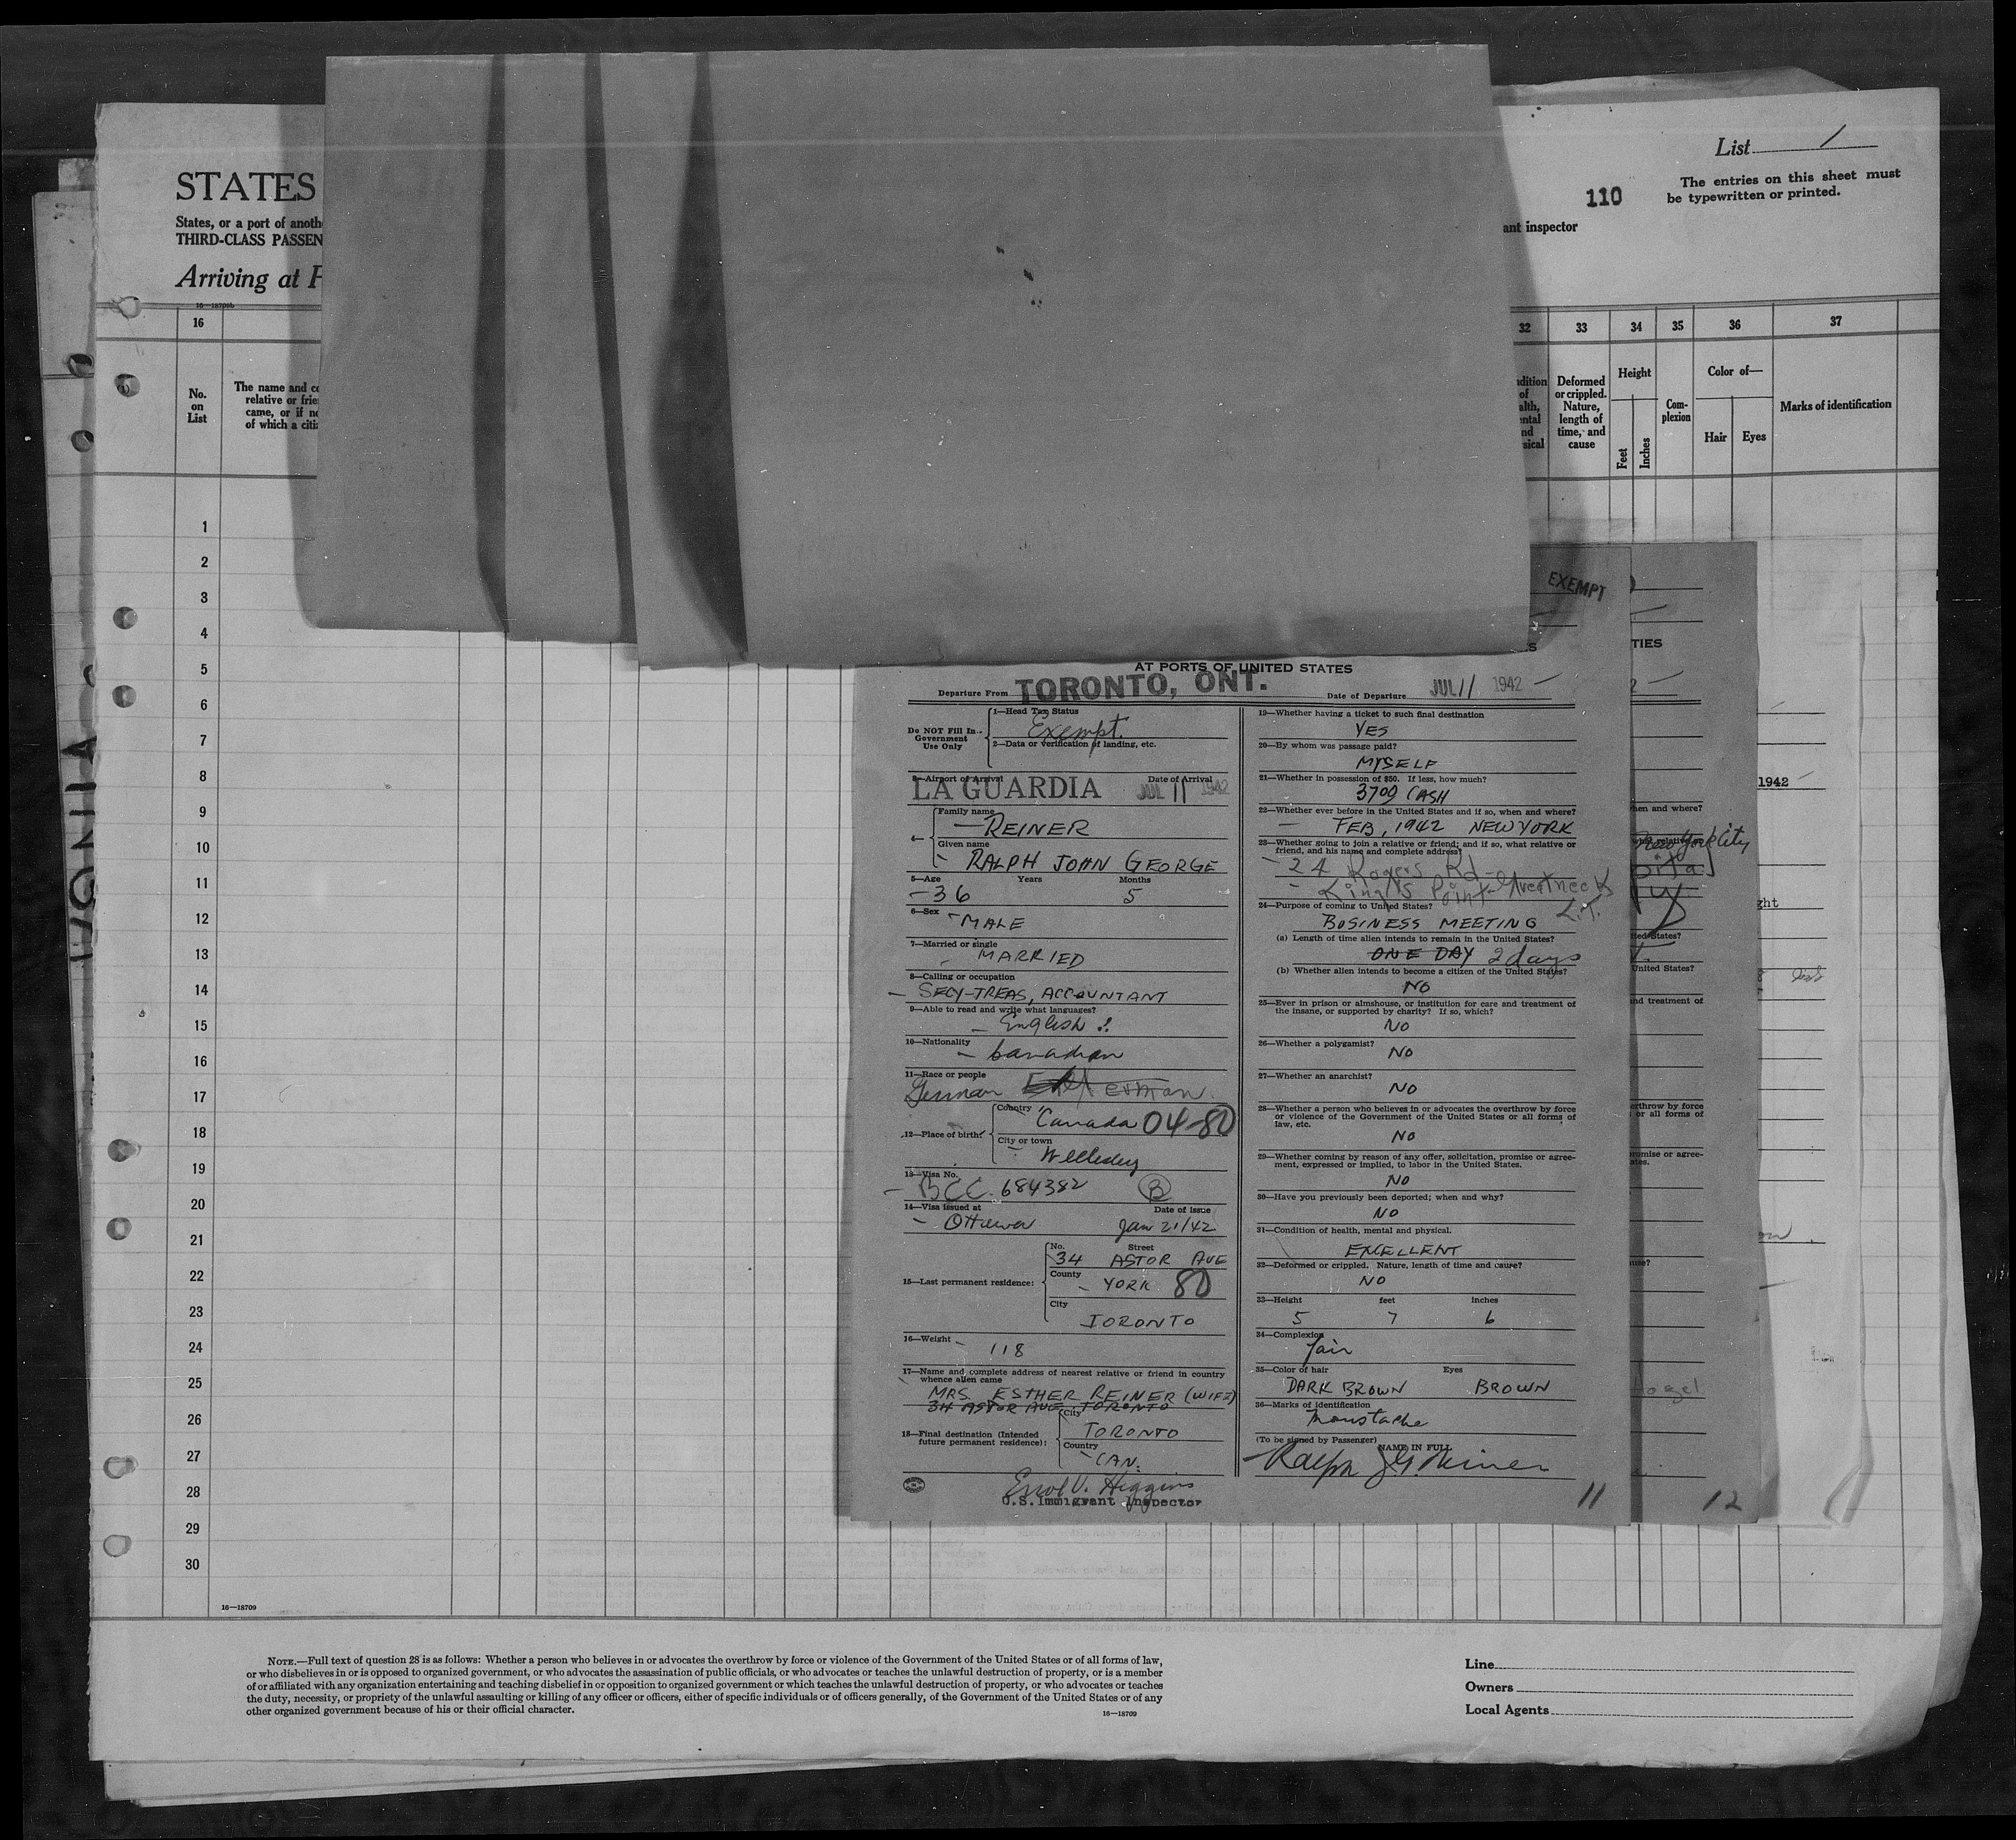 List 1
110
The entries on this sheet must
be typewritten or printed.
STATES
States, or a port of anoth
THIRD-CLASS PASSEN
ant inspector
Arriving at P
16
32
33
34
35
36
37
No.
on
List
The name and co
relative or frie
came, or if no
of which a citi
Deformed
or crippled.
Nature,
length of
time, and
cause
Height
Feet
Inches
Com-
plexion
Color of—
Hair
Eyes
Marks of identification
1
2
3
4
5
6
7
8
9
10
11
12
13
14
15
16
17
18
19
20
21
22
23
24
25
26
27
28
29
30
16—18709
EXEMPT
AT PORTS OF UNITED STATES
Departure From TORONTO, ONT. Date of Departure JUL 11 1942 —
Do NOT Fill In
Government
Use Only
1—Head Tax Status
Exempt.
2—Data or verification of landing, etc.
3—Airport of Arrival Date of Arrival
LA GUARDIA JUL 11 1942
4—
Family name
— REINER
Given name
- RALPH JOHN GEORGE
5—Age Years Months
- 36 5
6—Sex
- MALE
7—Married or single
- MARRIED
8—Calling or occupation
- SECY-TREAS, ACCOUNTANT
9—Able to read and write what languages?
- English
10—Nationality
- Canadian
11—Race or people
German
12—Place of birth:
Country
Canada 04-80
City or town
- Wellesley
13—Visa No.
- BCC. 684382 B
14—Visa issued at Date of issue
- Ottawa Jan 21/42
15—Last permanent residence:
No. Street
34 ASTOR AVE
County
- YORK 80
City
TORONTO
16—Weight
- 118
17—Name and complete address of nearest relative or friend in country
whence alien came
MRS. ESTHER REINER (WIFE)
34 ASTOR AVE. TORONTO
18—Final destination (Intended
future permanent residence):
City
TORONTO
Country
- CAN.
Errol V. Higgins
U.S. Immigrant Inspector
19—Whether having a ticket to such final destination
YES
20—By whom was passage paid?
MYSELF
21—Whether in possession of $50. If less, how much?
CASH
22—Whether ever before in the United States and if so, when and where?
— FEB, 1942 NEW YORK
23—Whether going to join a relative or friend; and if so, what relative or
friend, and his name and complete address?
- 24 Rogers Rd -
- King's Point - Great Neck
L.I.
24—Purpose of coming to United States?
BUSINESS MEETING
(a) Length of time alien intends to remain in the United States?
ONE DAY 2 days
(b) Whether alien intends to become a citizen of the United States?
NO
25—Ever in prison or almshouse, or institution for care and treatment of
the insane, or supported by charity? If so, which?
NO
26—Whether a polygamist?
NO
27—Whether an anarchist?
NO
28—Whether a person who believes in or advocates the overthrow by force
or violence of the Government of the United States or all forms of
law, etc.
NO
29—Whether coming by reason of any offer, solicitation, promise or agree-
ment, expressed or implied, to labor in the United States.
NO
30—Have you previously been deported; when and why?
NO
31—Condition of health, mental and physical.
EXCELLENT
32—Deformed or crippled. Nature, length of time and cause?
NO
33—Height feet inches
5 7 6
34—Complexion
fair
35—Color of hair Eyes
DARK BROWN BROWN
36—Marks of identification
Moustache
(To be signed by Passenger)
NAME IN FULL
Ralph J G Reiner
11
TIES
1942
hen and where?
New York City
ght
ited States?
United States?
nd treatment of
erthrow by force
or all forms of
romise or agree-
ates.
use?
12
NOTE.—Full text of question 28 is as follows: Whether a person who believes in or advocates the overthrow by force or violence of the Government of the United States or of all forms of law,
or who disbelieves in or is opposed to organized government, or who advocates the assassination of public officials, or who advocates or teaches the unlawful destruction of property, or is a member
of or affiliated with any organization entertaining and teaching disbelief in or opposition to organized government or which teaches the unlawful destruction of property, or who advocates or teaches
the duty, necessity, or propriety of the unlawful assaulting or killing of any officer or officers, either of specific individuals or of officers generally, of the Government of the United States or of any
other organized government because of his or their official character.
16—18709
Line
Owners
Local Agents